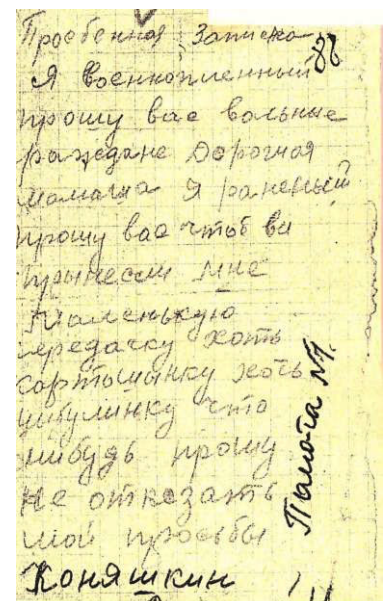 Прозбенная Записка
88
Я военнопленный
прошу вас вольные
раждане Дорогая
мамаша Я раненый
прошу вас чтоб ви
прынесли мне
маленькую
передачку хоть
картошынку хоть
цибулинку что
нибудь прошу
не отказать
мой просьбы
Коняшкин
Палата №1.